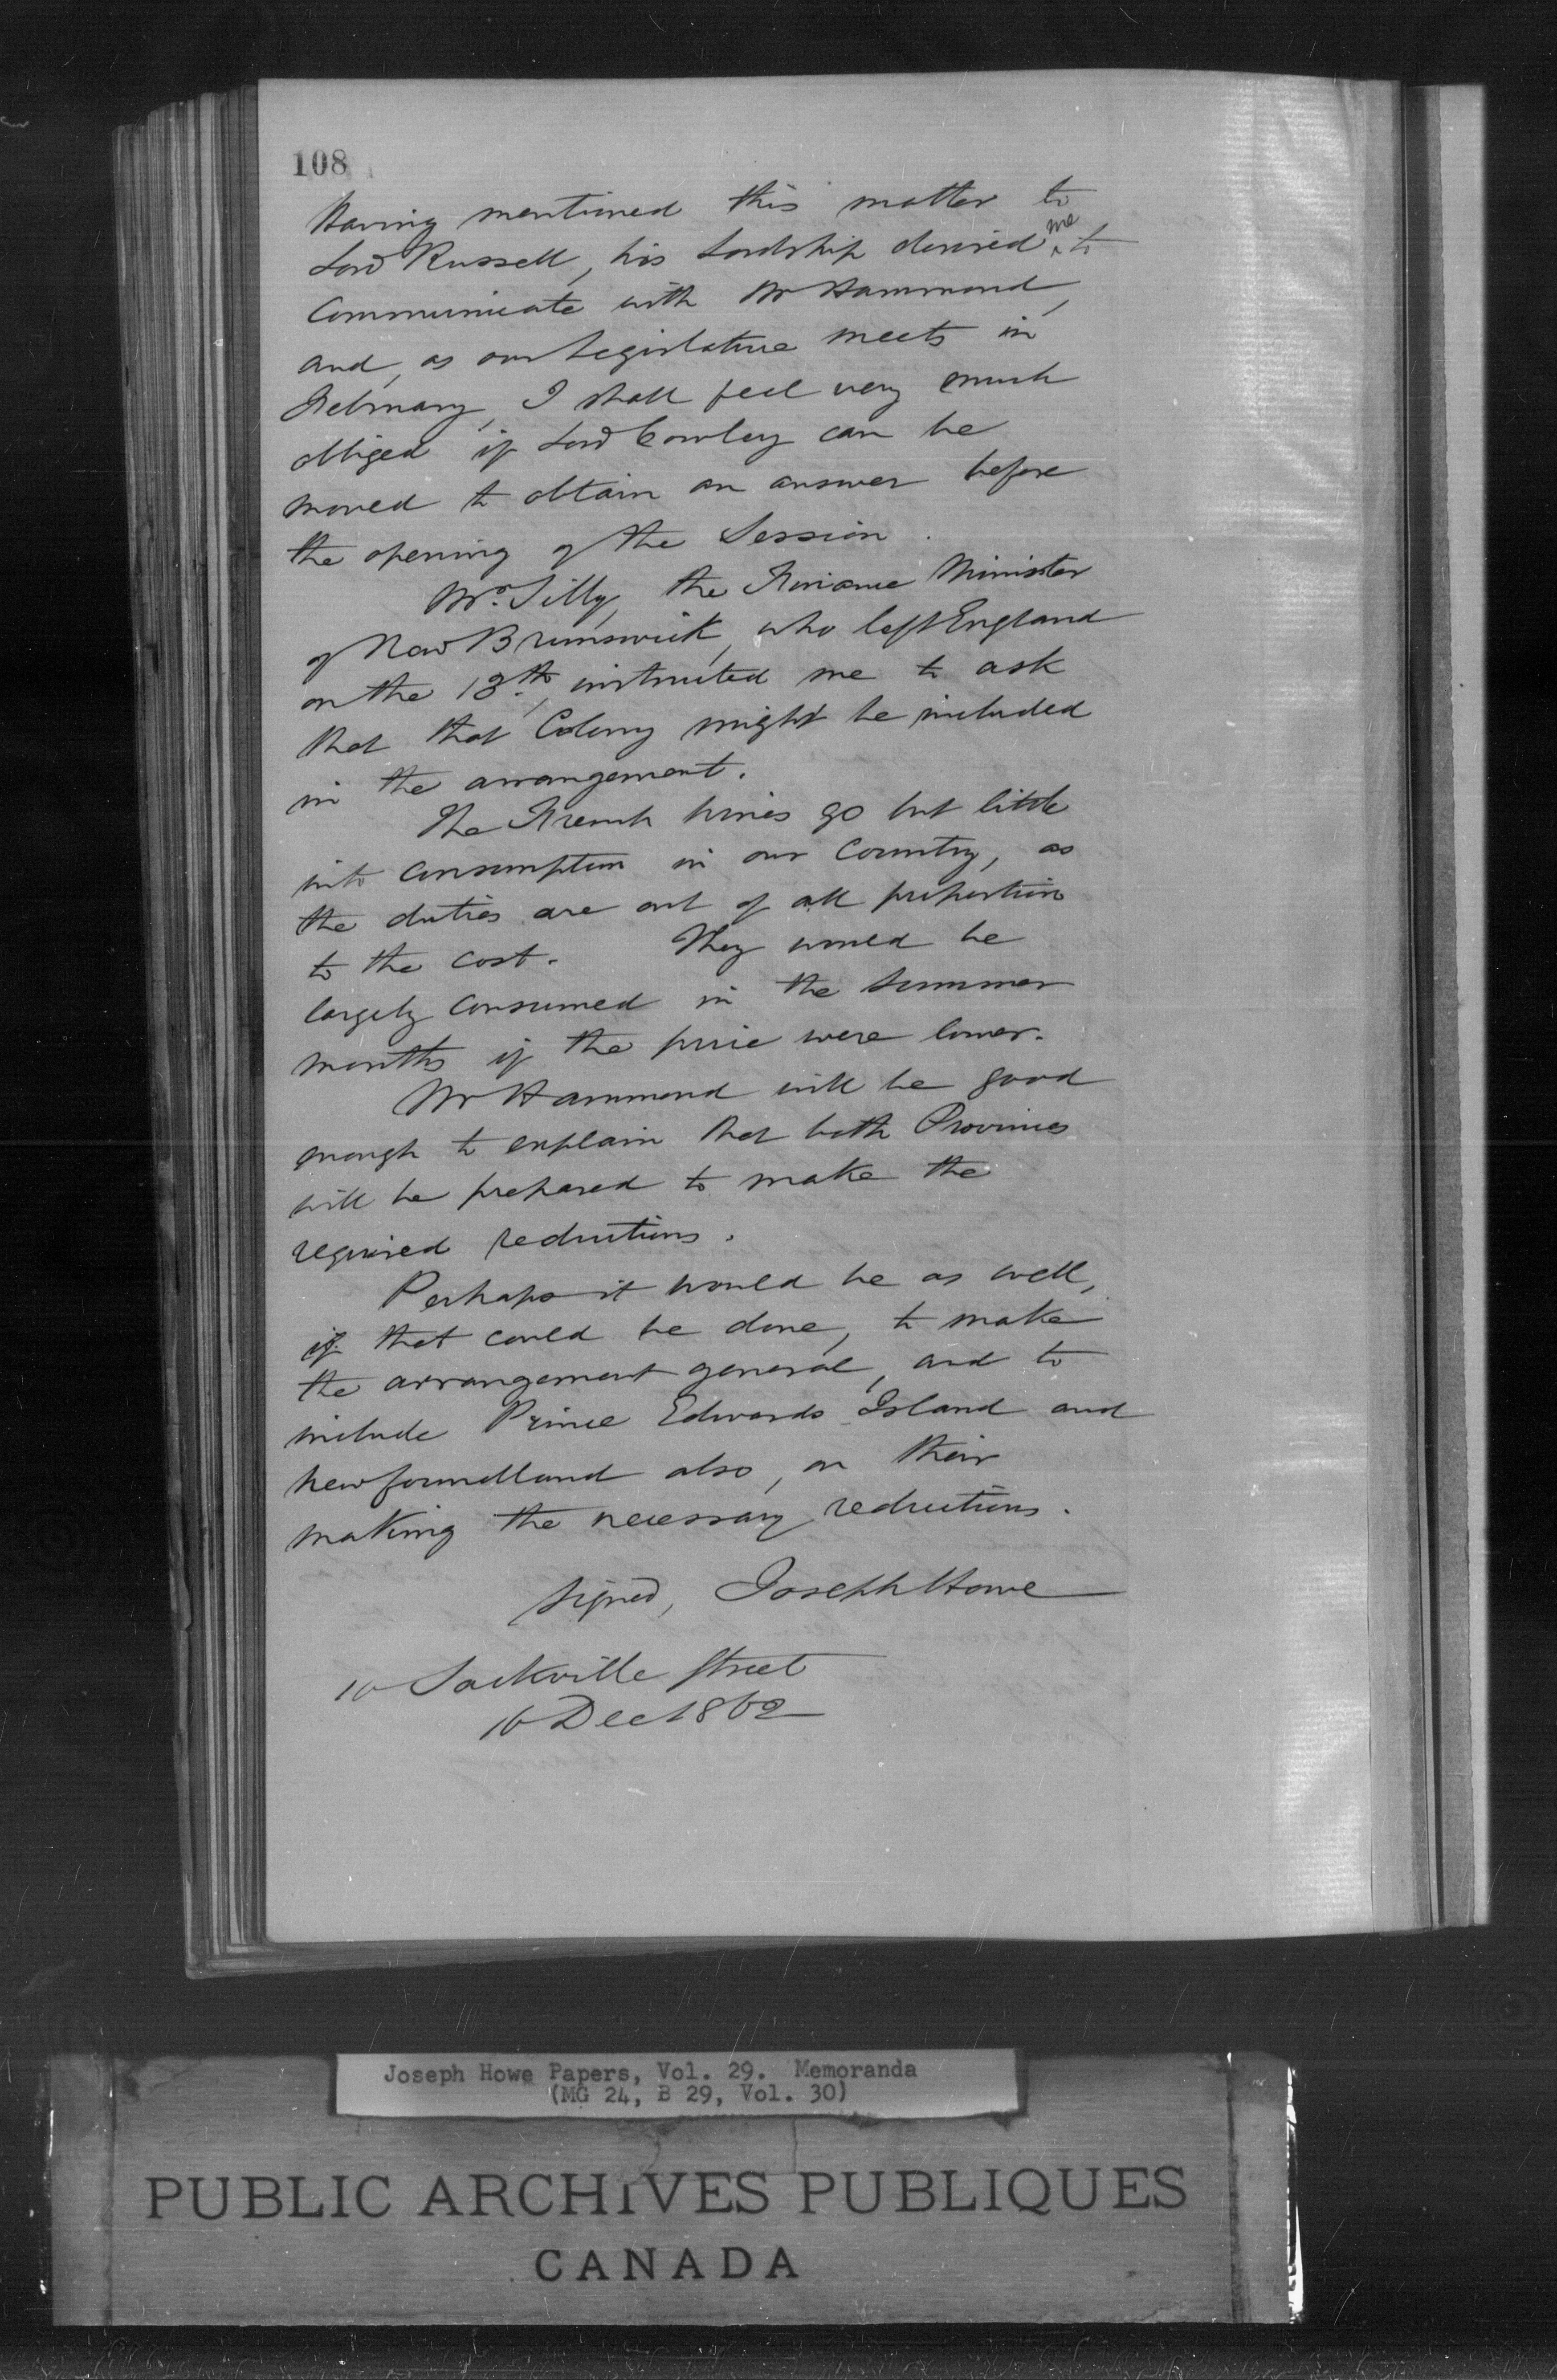 108
Having mentioned this matter to
Lord Russell, his Lordship desired me to
Communicate with Mr Hammond,
and, as our Legislature meets in
February, I shall feel very much
obliged if Lord Cowley can be
moved to obtain an answer before
the opening of the Session.
Mr. Tilly, the Finance Minister
of New Brunswick, who left England
on the 13th, instructed me to ask
that that Colony might be included
in the arrangement.
The French wines go but little
into consumption in our Country, as
the duties are out of all proportion
to the cost. They would be
largely consumed in the summer
months if the price were lower.
Mr Hammond will be good
enough to explain that both Provinces
will be prepared to make the
required reductions.
Perhaps it would be as well,
if that could be done, to make
the arrangement general, and to
include Prince Edwards Island and
Newfoundland also, on their
making the necessary reductions.
Signed, Joseph Howe
10 Sackville Street
16 Dec 1862
Joseph Howe Papers, Vol. 29. Memoranda
(MG 24, B 29, Vol. 30)
PUBLIC ARCHIVES PUBLIQUES
CANADA